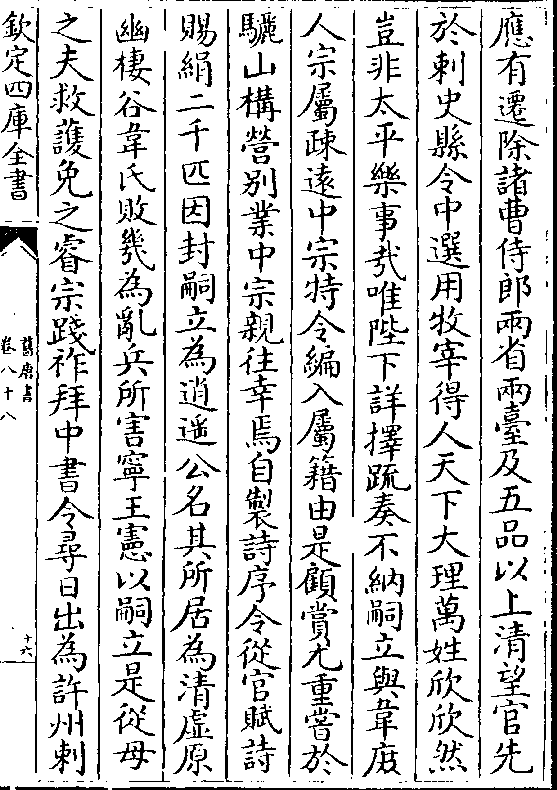 應有遷除諸曹侍郎兩省兩臺及五品以上清望官先
於刺史縣令中選用牧宰得人天下大理萬姓欣欣然
豈非太平樂事哉唯陛下詳擇疏奏不納嗣立與韋庶
人宗屬疎遠中宗特令編入屬籍由是顧賞尤重嘗於
驪山構營别業中宗親往幸焉自製詩序令從官賦詩
賜絹二千匹因封嗣立為逍遥公名其所居為清虛原
幽棲谷韋氏敗幾為亂兵所害寧王憲以嗣立是從母
之夫救護免之睿宗踐祚拜中書令尋日出為許州刺
欽定四庫全書
舊唐書
卷八十八
十六